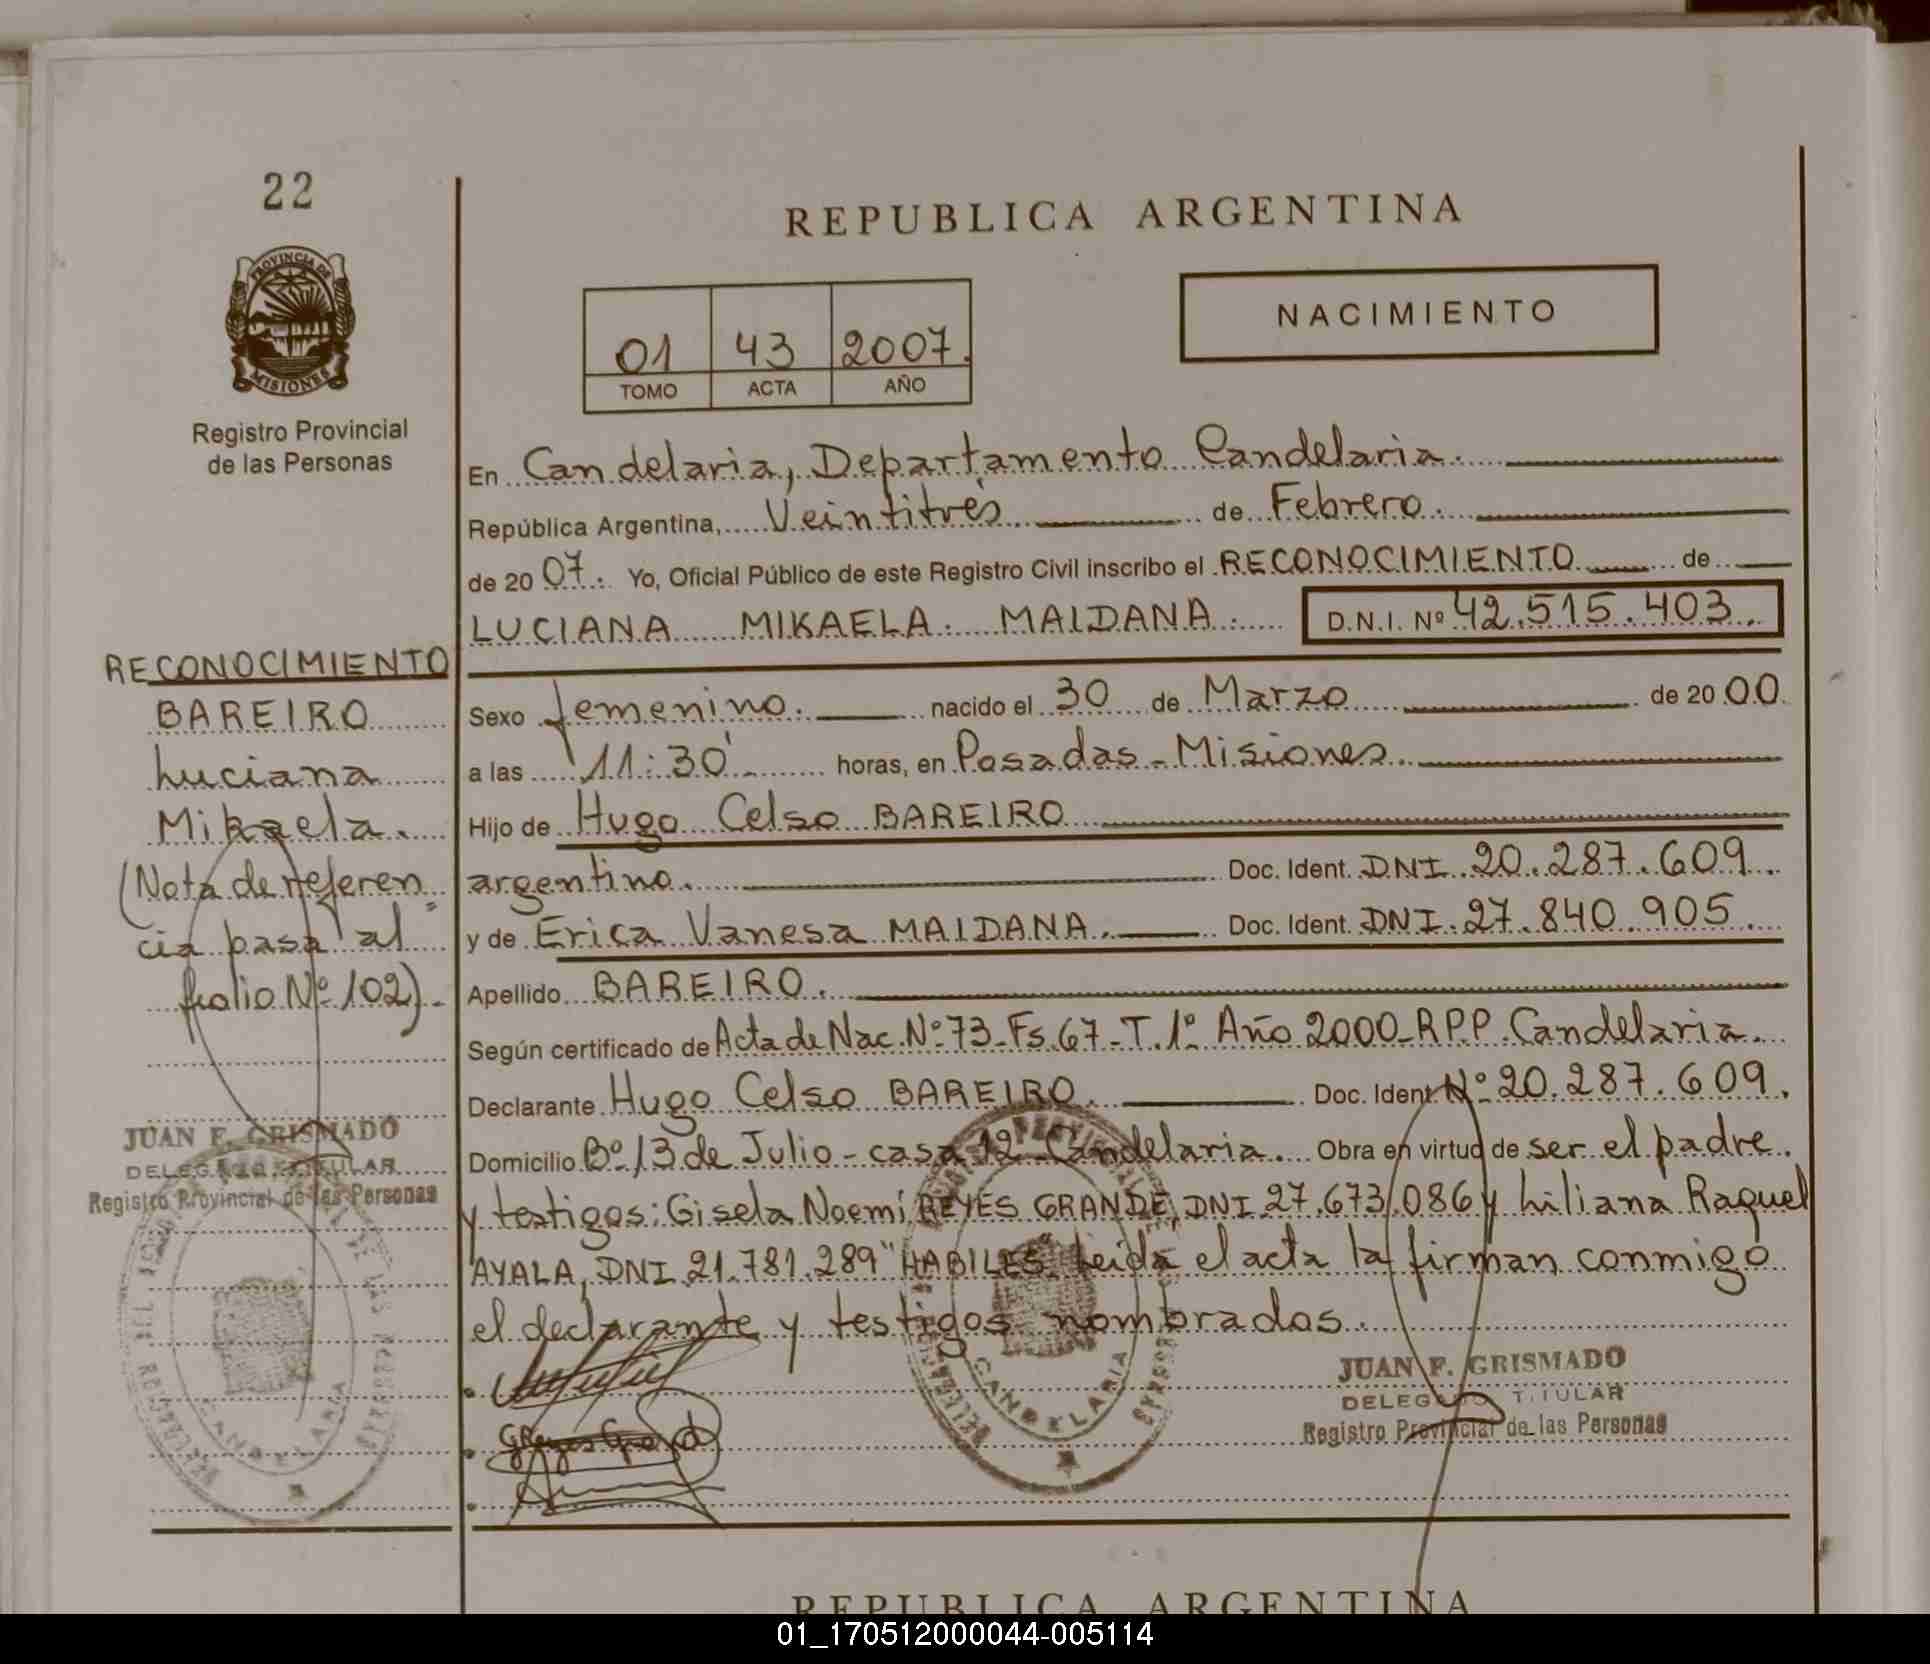 22
PROVINCIA DE
MISIONES
Registro Provincial
de las Personas
REPUBLICA ARGENTINA
01 43 2007.
TOMO ACTA AÑO
NACIMIENTO
En Candelaria, Departamento Candelaria.
República Argentina, Veintitrés de Febrero.
de 20 07. Yo, Oficial Público de este Registro Civil inscribo el RECONOCIMIENTO de
LUCIANA MIKAELA. MAIDANA. D.N.I. Nº 42.515.403.
Sexo femenino. nacido el 30 de Marzo de 20 00.
a las 11:30' horas, en Posadas - Misiones.
Hijo de Hugo Celso BAREIRO
argentino. Doc. Ident. DNI. 20.287.609.
y de Erica Vanesa MAIDANA. Doc. Ident. DNI. 27.840.905.
Apellido BAREIRO.
Según certificado de Acta de Nac. Nº 73 - Fs. 67 - T. 1º Año 2000 - R.P.P. Candelaria.
Declarante Hugo Celso BAREIRO. Doc. Ident. Nº 20.287.609.
Domicilio Bº 13 de Julio - casa 12 - Candelaria. Obra en virtud de ser el padre.
y testigos: Gisela Noemí REYES GRANDE, DNI 27.673.086 y Liliana Raquel
AYALA, DNI 21.781.289 "HABILES" Leída el acta la firman conmigo
el declarante y testigos nombrados.
RECONOCIMIENTO
BAREIRO
Luciana
Mikaela.
(Nota de referen=
cia pasa al
folio Nº 102).
JUAN F. GRISMADO
DELEGADO TITULAR
Registro Provincial de las Personas
CANDELARIA
JUAN F. GRISMADO
DELEGADO TITULAR
Registro Provincial de las Personas
CANDELARIA
REPUBLICA ARGENTINA
01_170512000044-005114